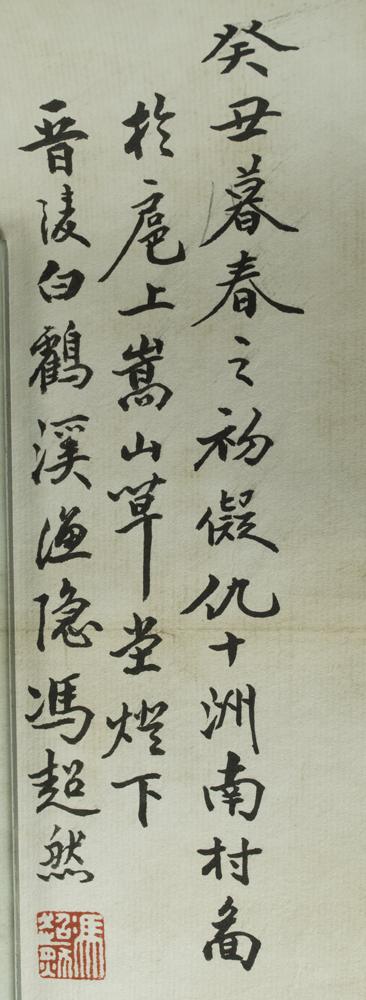 癸丑暮春之初儗仇十洲南村啚
於扈上嵩山草堂燈下
晋陵白鶴溪漁隐馮超然
馮超然